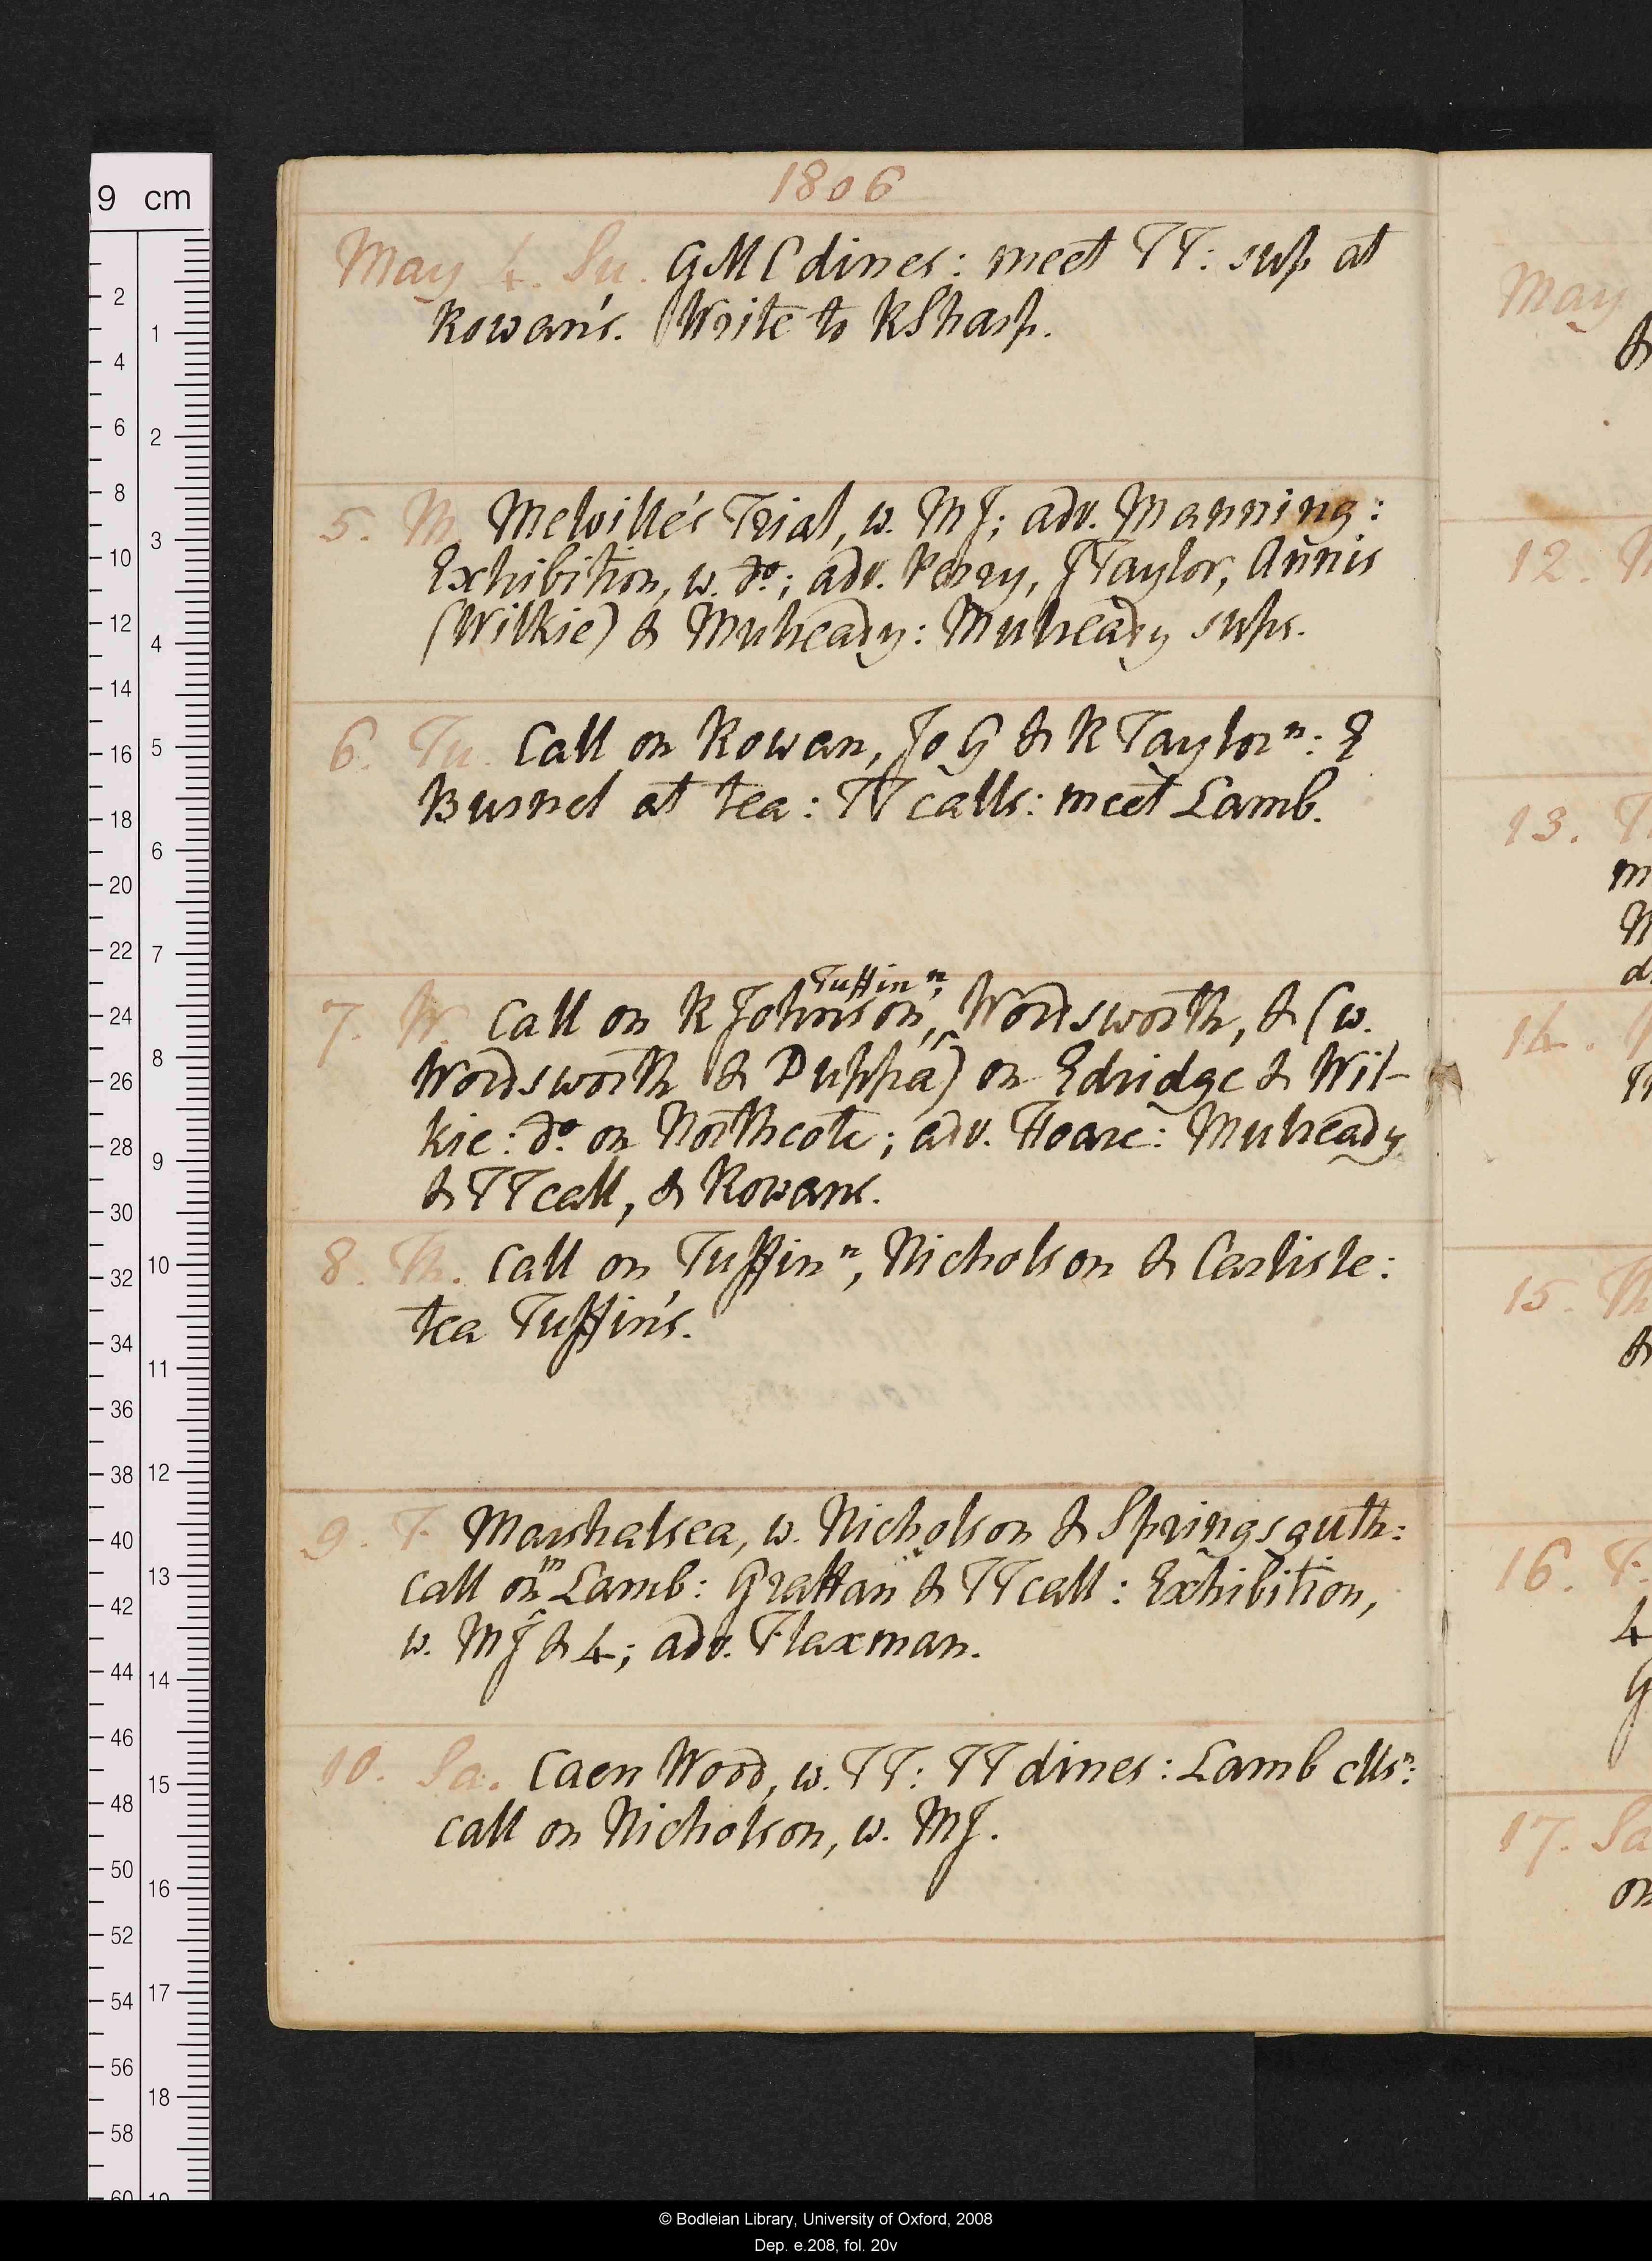 1806
May 4. Su. GMC dines: meet TT: sup at
Rowan's. Write to R Sharp.
5. M. Melville's Trial, w. MJ; adv. Manning:
Exhibition, w. do.; adv. Perry, J Taylor, Annis
(Wilkie) & Mulready: Mulready sups.
6. Tu. Call on Rowan, Jo G & R Taylor n: E
Busnel at tea: TT calls: meet Lamb.
7. W. Call on R Johnson, Tuffin n, Wordsworth, & (w.
Wordsworth & Duppa) on Edridge & Wil-
kie: do. on Northcote; adv. Hoare: Mulready
& TT call, & Rowans.
8. Th. Call on Tuffin n, Nicholson & Carlisle:
tea Tuffin's.
9. F. Marshalsea, w. Nicholson & Springsguth:
call on m Lamb: Grattan & TT call: Exhibition,
w. MJ & 4; adv. Flaxman.
10. Sa. Caen Wood, w. TT: TT dines: Lamb clls n:
call on Nicholson, w. MJ.
May
12.
13. T
m
14.
15. Th
&
16. F.
4
G
17. Sa
on
9 cm
2
4
6
8
10
12
14
16
18
20
22
24
26
28
30
32
34
36
38
40
42
44
46
48
50
52
54
56
58
60
1
2
3
4
5
6
7
8
9
10
11
12
13
14
15
16
17
18
19
© Bodleian Library, University of Oxford, 2008
Dep. e.208, fol. 20v